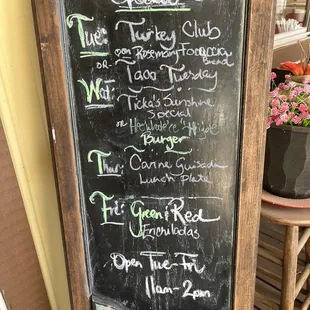 Tue: Turkey Club
on Rosemary Focaccia
Bread
OR
Taco Tuesday
Wed:
Ticka's Sunshine
Special
or
Burger
Thu: Carne Guisada
Lunch Plate
Fri: Green & Red
Enchiladas
Open Tue-Fri
11am-2pm